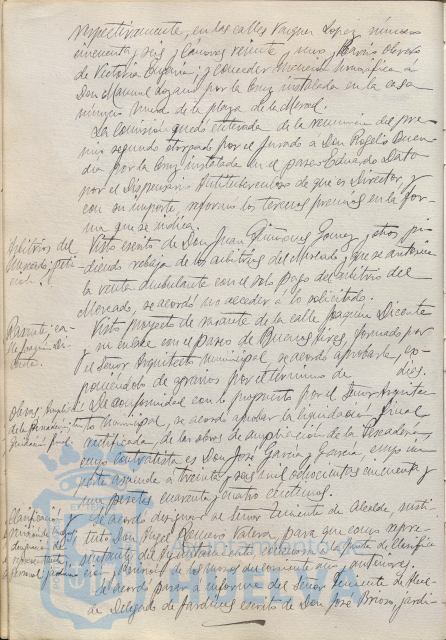 respectivamente, en las calles Vazquez Lopez, número
cincuenta y seis y Cánovas veinte y uno, y Barrio Obrero
de Victoria Eugenia; y conceder mención honorífica á
Don Manuel Lozano por la Cruz instalada en la casa
número nueve de la plaza de la Merced.
La Comisión quedó enterada de la renuncia del pre-
mio segundo otorgado por el Jurado a Don Rogelio Buen-
día por la Cruz instalada en el paseo Eduardo Dato
por el Dispensario Antituberculoso de que es Director, y
con su importe, reforzar los terceros premios en la for-
ma que se indica.
Arbitrios del
Mercado; peti-
ción.
Visto escrito de Don Juan Quiñones Gomez y otros pi-
diendo rebaja de los arbitrios del Mercado y que se autorice
la venta ambulante con el solo pago del arbitrio del
Mercado, se acordó no acceder a lo solicitado.
Rasante, ca-
lle Joaquín Di-
cente.
Visto proyecto de rasante de la calle Joaquín Dicente
y su enlace con el paseo de Buenos Aires, formado por
el Señor Arquitecto Municipal, se acordó aprobarle, ex-
poniéndolo de agravios por el término de dias.
Obras, ampliación
de la Pescadería, li-
quidación final.
De conformidad con lo propuesto por el Señor Arquitec-
to Municipal, se acordó aprobar la liquidación final
rectificada, de las obras de ampliación de la Pescadería
cuyo contratista es Don José García y García, cuyo im-
porte asciende a treinta y seis mil ochocientas cincuenta y
una pesetas cuarenta y cuatro céntimos.
Clasificación y
revisión de
designación
de representante
Se acordó designar al Señor Teniente de Alcalde, susti-
tuto Don Angel Romero Valera, para que como repre-
sentante del Ayuntamiento ante la Junta de Clasifica-
ción y Revisión de los mozos de
Se acordó pasar a informe del Señor Teniente de Alcal-
de Delegado de Jardines escrito de Don José Brioso, jardi-
Ayuntamiento de
HUELVA